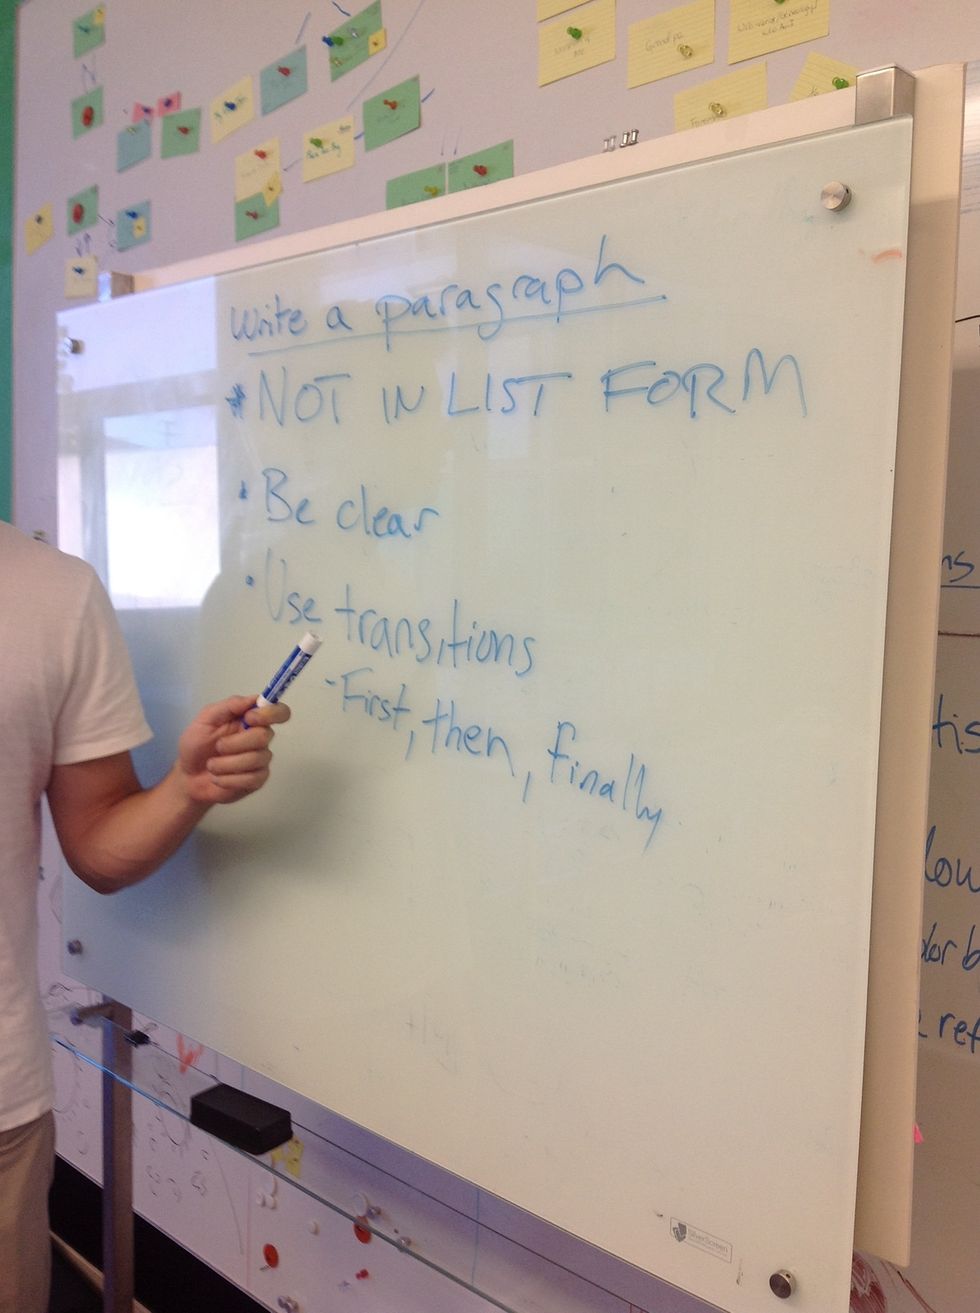 Write a paragraph
* NOT IN LIST FORM
• Be clear
• Use transitions
- First, then, finally
SilverScreen
Grandpa
ns
tis
low
olor b
ref